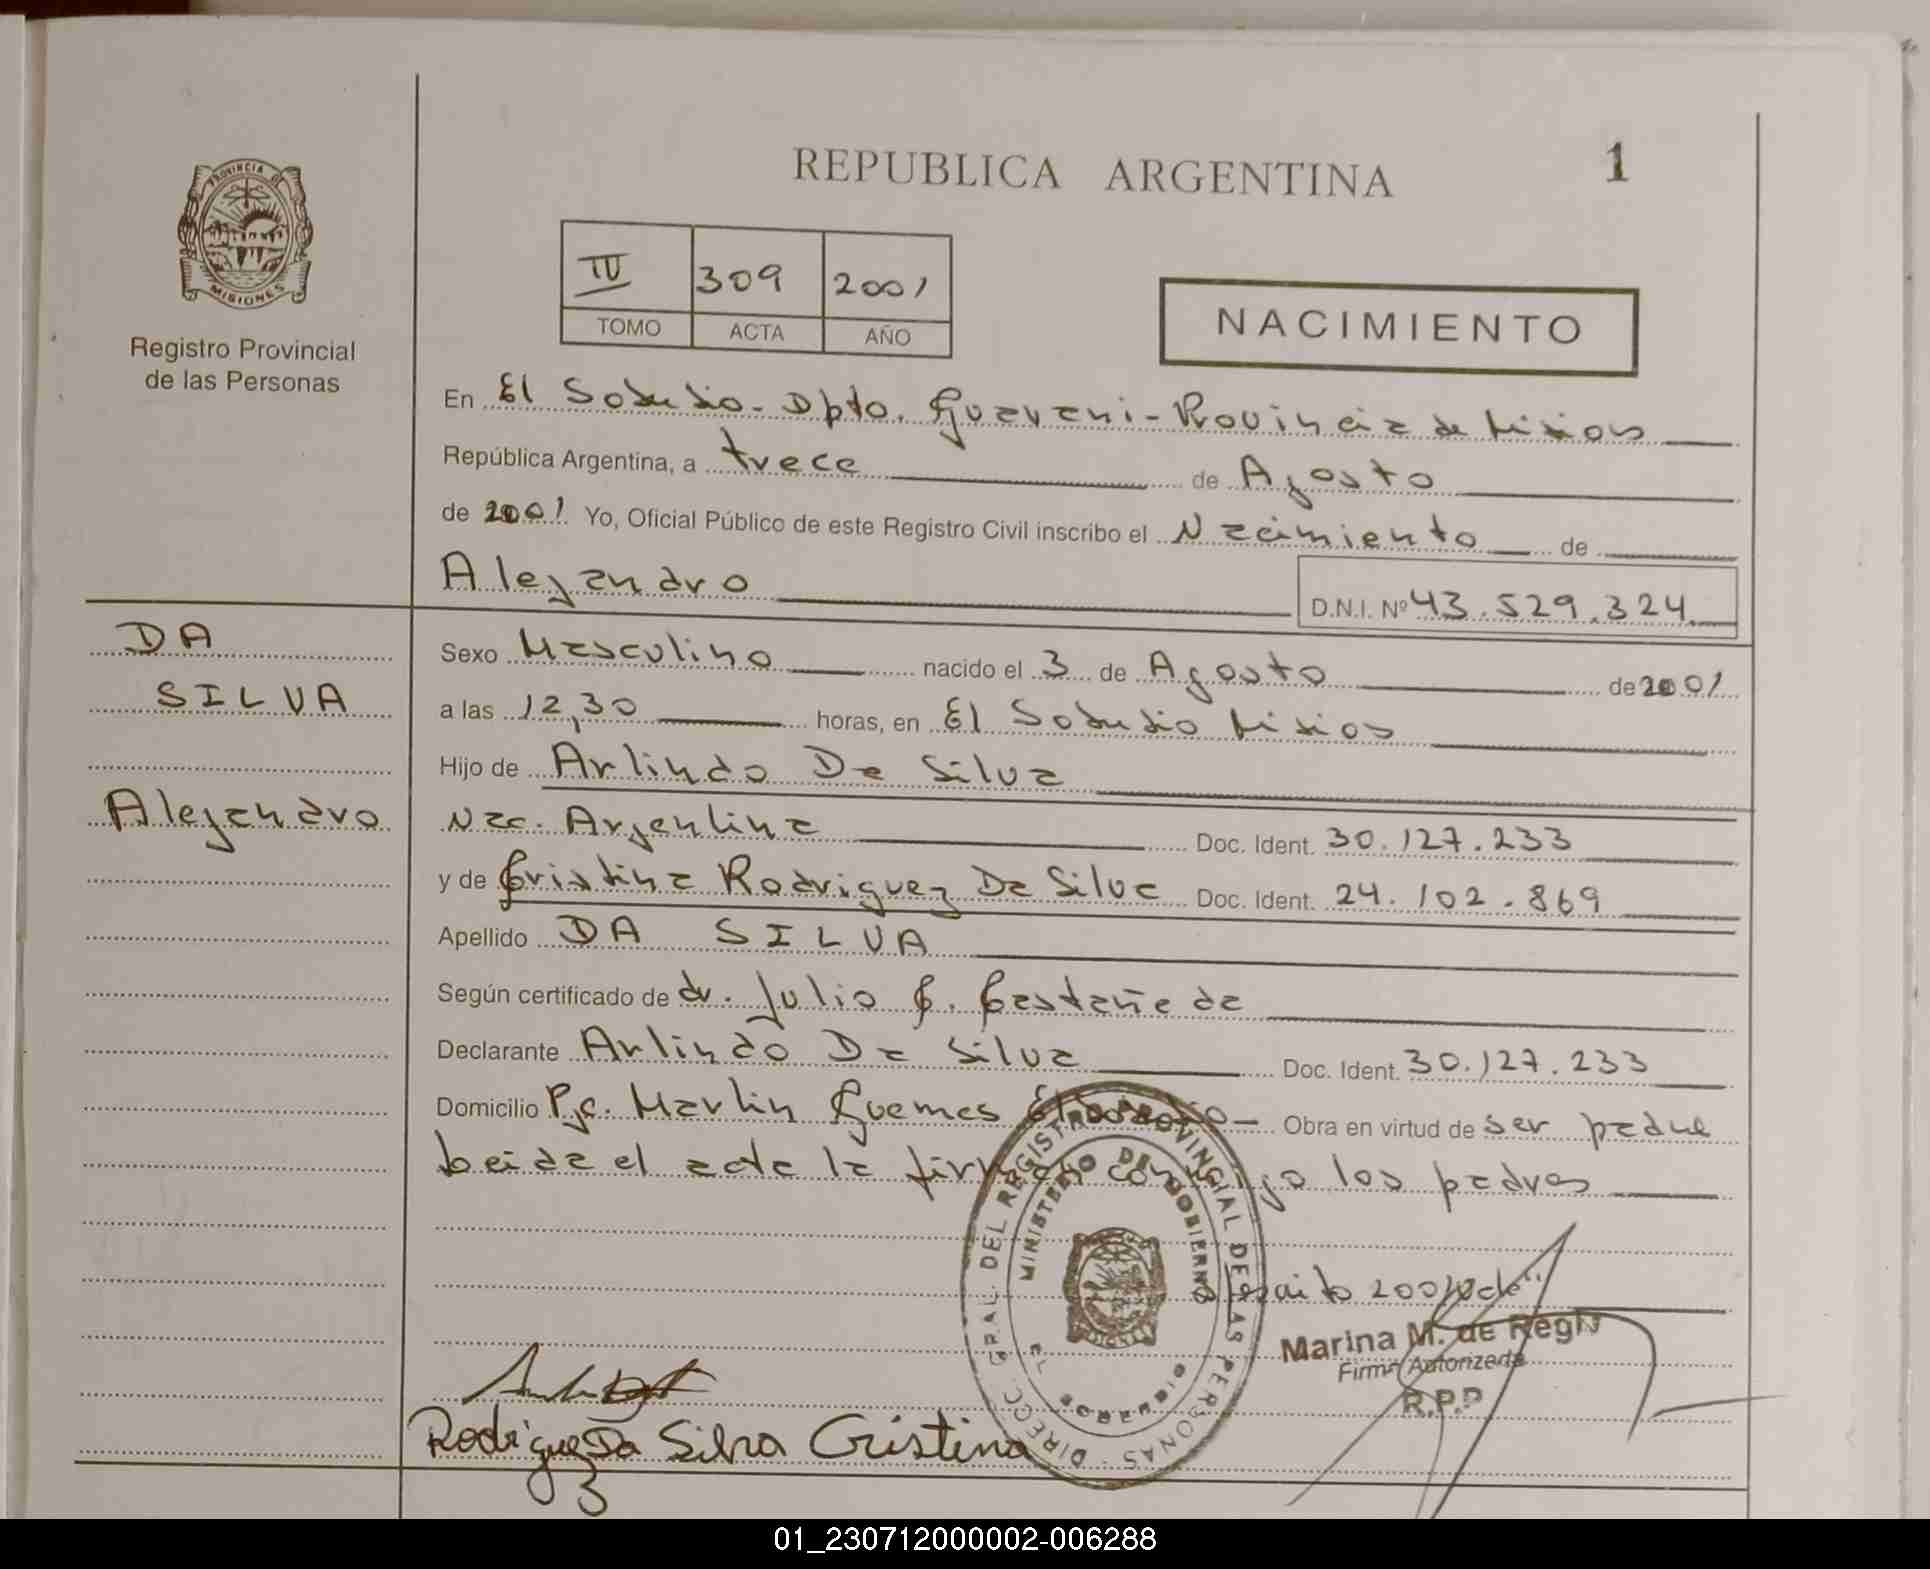 REPUBLICA ARGENTINA
1
PROVINCIA DE
MISIONES
Registro Provincial
de las Personas
IV 309 2001
TOMO ACTA AÑO
NACIMIENTO
En El Soberbio - Dpto. Guarani - Provincia de Misiones
República Argentina, a trece de Agosto
de 2001 Yo, Oficial Público de este Registro Civil inscribo el Nacimiento de
Alejandro D.N.I. Nº 43.529.324
DA
SILVA
Alejandro
Sexo Masculino nacido el 3 de Agosto de 2001
a las 12,30 horas, en El Soberbio Misiones
Hijo de Arlindo Da Silva
Nac. Argentina Doc. Ident. 30.127.233
y de Cristina Rodriguez Da Silva Doc. Ident. 24.102.869
Apellido DA SILVA
Según certificado de dr. Julio C. Castañeda
Declarante Arlindo Da Silva Doc. Ident. 30.127.233
Domicilio Pje. Martin Guemes El Soberbio - Obra en virtud de ser padre
Leida el acta la firman conmigo los padres
DIRECC. GRAL. DEL REGISTRO PROVINCIAL DE LAS PERSONAS
MINISTERIO DE GOBIERNO
EL SOBERBIO
2001 vale"
Marina M. de Regly
Firma Autorizada
R.P.P
Rodriguez Da Silva Cristina
01_230712000002-006288